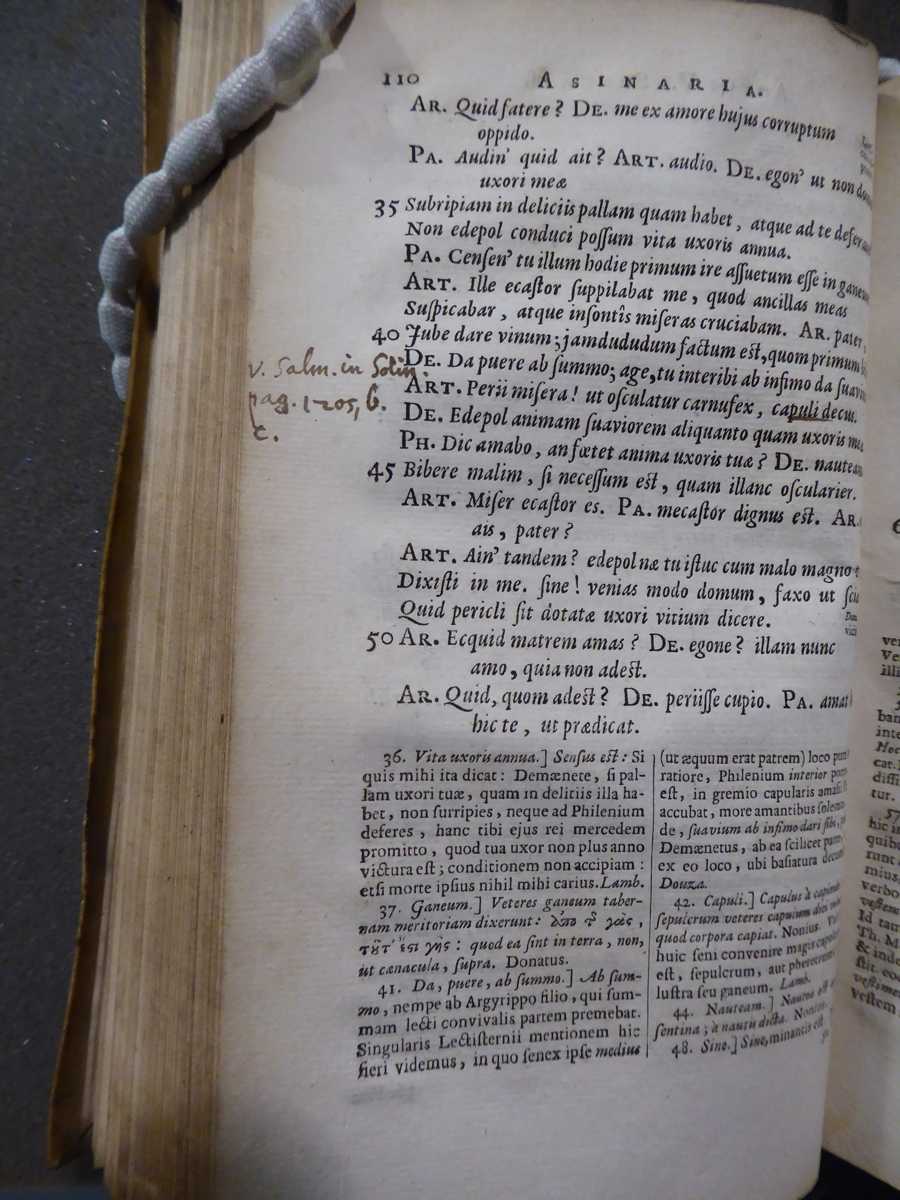 110 ASINARIA.
AR. Quid fatere? DE. me ex amore hujus corruptum
oppido.
PA. Audin' quid ait? ART. audio. DE. egon' ut non
uxori meæ
35 Subripiam in deliciis pallam quam habet, atque ad te
Non edepol conduci possum vita uxoris annua.
PA. Censen' tu illum hodie primum ire assuetum esse in
ART. Ille ecastor suppilabat me, quod ancillas meas
Suspicabar, atque insontîs miseras cruciabam. AR. pater,
40 Jube dare vinum; jamdududum factum est, quom primum
DE. Da puere ab summo; age, tu interibi ab infimo da
v. Salm. in Solin.
ART. Perii misera! ut osculatur carnufex, capuli decus.
pag. 1205, b.
DE. Edepol animam suaviorem aliquanto quam uxoris
c.
PH. Dic amabo, an fœtet anima uxoris tuæ? DE.
45 Bibere malim, si necessum est, quam illanc oscularier.
ART. Miser ecastor es. PA. mecastor dignus est. AR.
ais, pater?
ART. Ain' tandem? edepol næ tu istuc cum malo magno
Dixisti in me. sine! venias modo domum, faxo ut
Quid pericli sit dotatæ uxori vitium dicere.
50 AR. Ecquid matrem amas? DE. egone? illam nunc
amo, quia non adest.
AR. Quid, quom adest? DE. periisse cupio. PA.
hic te, ut prædicat.
36. Vita uxoris annua.] Sensus est: Si
quis mihi ita dicat: Demænete, si pal-
lam uxori tuæ, quam in deliciis illa ha-
bet, non surripies, neque ad Philenium
deferes, hanc tibi ejus rei mercedem
promitto, quod tua uxor non plus anno
victura est; conditionem non accipiam:
etsi morte ipsius nihil mihi carius. Lamb.
37. Ganeum.] Veteres ganeum taber-
nam meritoriam dixerunt:
quod ea sint in terra, non,
ut cænacula, supra. Donatus.
41. Da, puere, ab summo.] Ab sum-
mo, nempe ab Argyrippo filio, qui sum-
mam lecti convivalis partem premebat.
Singularis Lectisternii mentionem hic
fieri videmus, in quo senex ipse medius
(ut æquum erat patrem) loco
ratiore, Philenium interior
est, in gremio capularis
accubat, more amantibus
de, suavium ab infimo dari sibi,
Demænetus, ab ea scilicet
ex eo loco, ubi basiatura
Douza.
42. Capuli.] Capulus à
sepulcrum veteres capulum
quod corpora capiat. Nonius.
huic seni convenire magis
est, sepulcrum, aut
lustra seu ganeum. Lamb.
44. Nauteam.] Nautea
sentina; à nautis dicta.
48. Sine.] Sine, minantis est